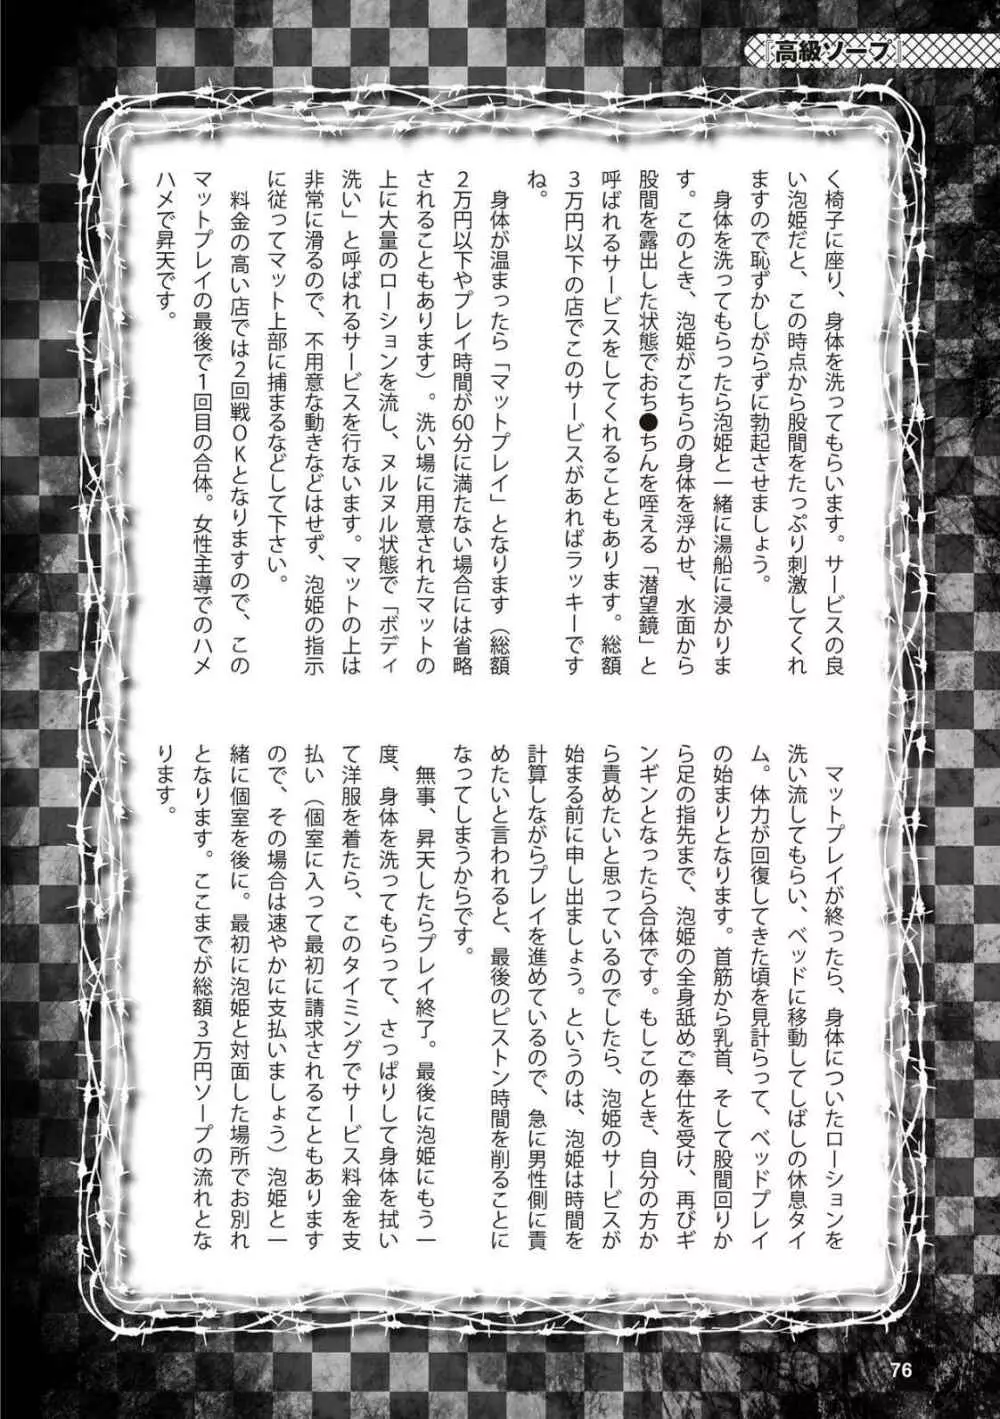 『高級ソープ』
く椅子に座り、身体を洗ってもらいます。サービスの良
い泡姫だと、この時点から股間をたっぷり刺激してくれ
ますので恥ずかしがらずに勃起させましょう。
　身体を洗ってもらったら泡姫と一緒に湯船に浸かりま
す。このとき、泡姫がこちらの身体を浮かせ、水面から
股間を露出した状態でおち●ちんを咥える「潜望鏡」と
呼ばれるサービスをしてくれることもあります。総額
3万円以下の店でこのサービスがあればラッキーです
ね。
　身体が温まったら「マットプレイ」となります（総額
2万円以下やプレイ時間が60分に満たない場合には省略
されることもあります）。洗い場に用意されたマットの
上に大量のローションを流し、ヌルヌル状態で「ボディ
洗い」と呼ばれるサービスを行ないます。マットの上は
非常に滑るので、不用意な動きなどはせず、泡姫の指示
に従ってマット上部に捕まるなどして下さい。
　料金の高い店では2回戦OKとなりますので、この
マットプレイの最後で1回目の合体。女性主導でのハメ
ハメで昇天です。
　マットプレイが終ったら、身体についたローションを
洗い流してもらい、ベッドに移動してしばしの休息タイ
ム。体力が回復してきた頃を見計らって、ベッドプレイ
の始まりとなります。首筋から乳首、そして股間回りか
ら足の指先まで、泡姫の全身舐めご奉仕を受け、再びギ
ンギンとなったら合体です。もしこのとき、自分の方か
ら責めたいと思っているのでしたら、泡姫のサービスが
始まる前に申し出ましょう。というのは、泡姫は時間を
計算しながらプレイを進めているので、急に男性側に責
めたいと言われると、最後のピストン時間を削ることに
なってしまうからです。
　無事、昇天したらプレイ終了。最後に泡姫にもう一
度、身体を洗ってもらって、さっぱりして身体を拭い
て洋服を着たら、このタイミングでサービス料金を支
払い（個室に入って最初に請求されることもあります
ので、その場合は速やかに支払いましょう）泡姫と一
緒に個室を後に。最初に泡姫と対面した場所でお別れ
となります。ここまでが総額3万円ソープの流れとな
ります。
76